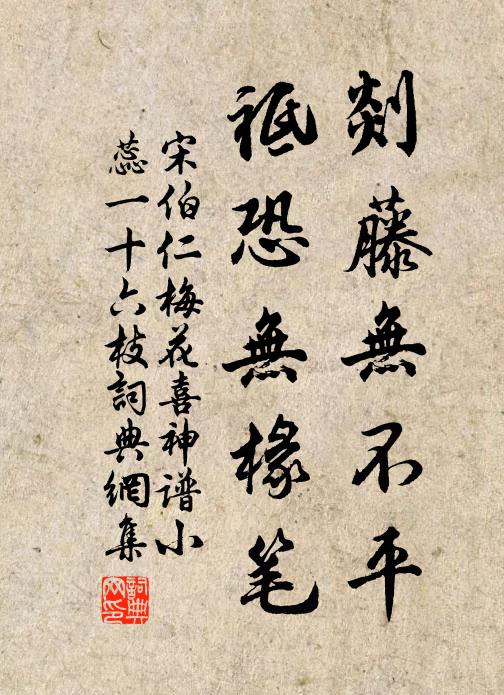 剡藤無不平
祗恐無椽笔
宋伯仁梅花喜神谱小
蕊一十六枝詞典網集
詞典网印